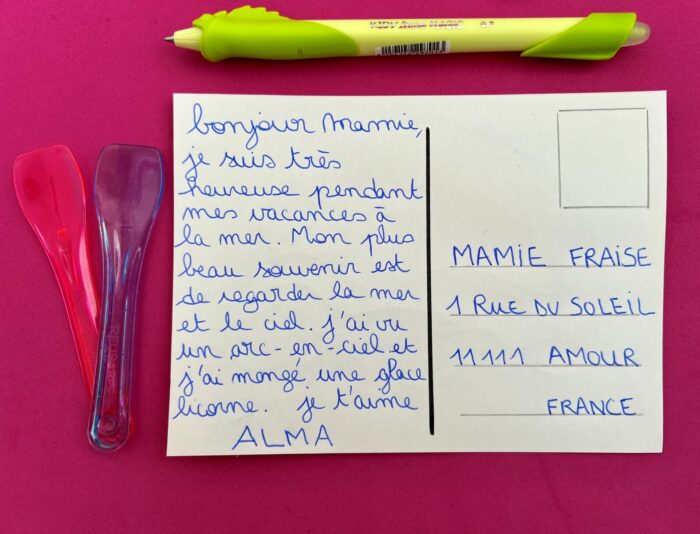 bonjour mamie,
je suis très
heureuse pendant
mes vacances à
la mer. Mon plus
beau souvenir est
de regarder la mer
et le ciel. j'ai vu
un arc-en-ciel et
j'ai mangé une glace
licorne. je t'aime
ALMA
MAMIE FRAISE
1 RUE DU SOLEIL
11111 AMOUR
FRANCE